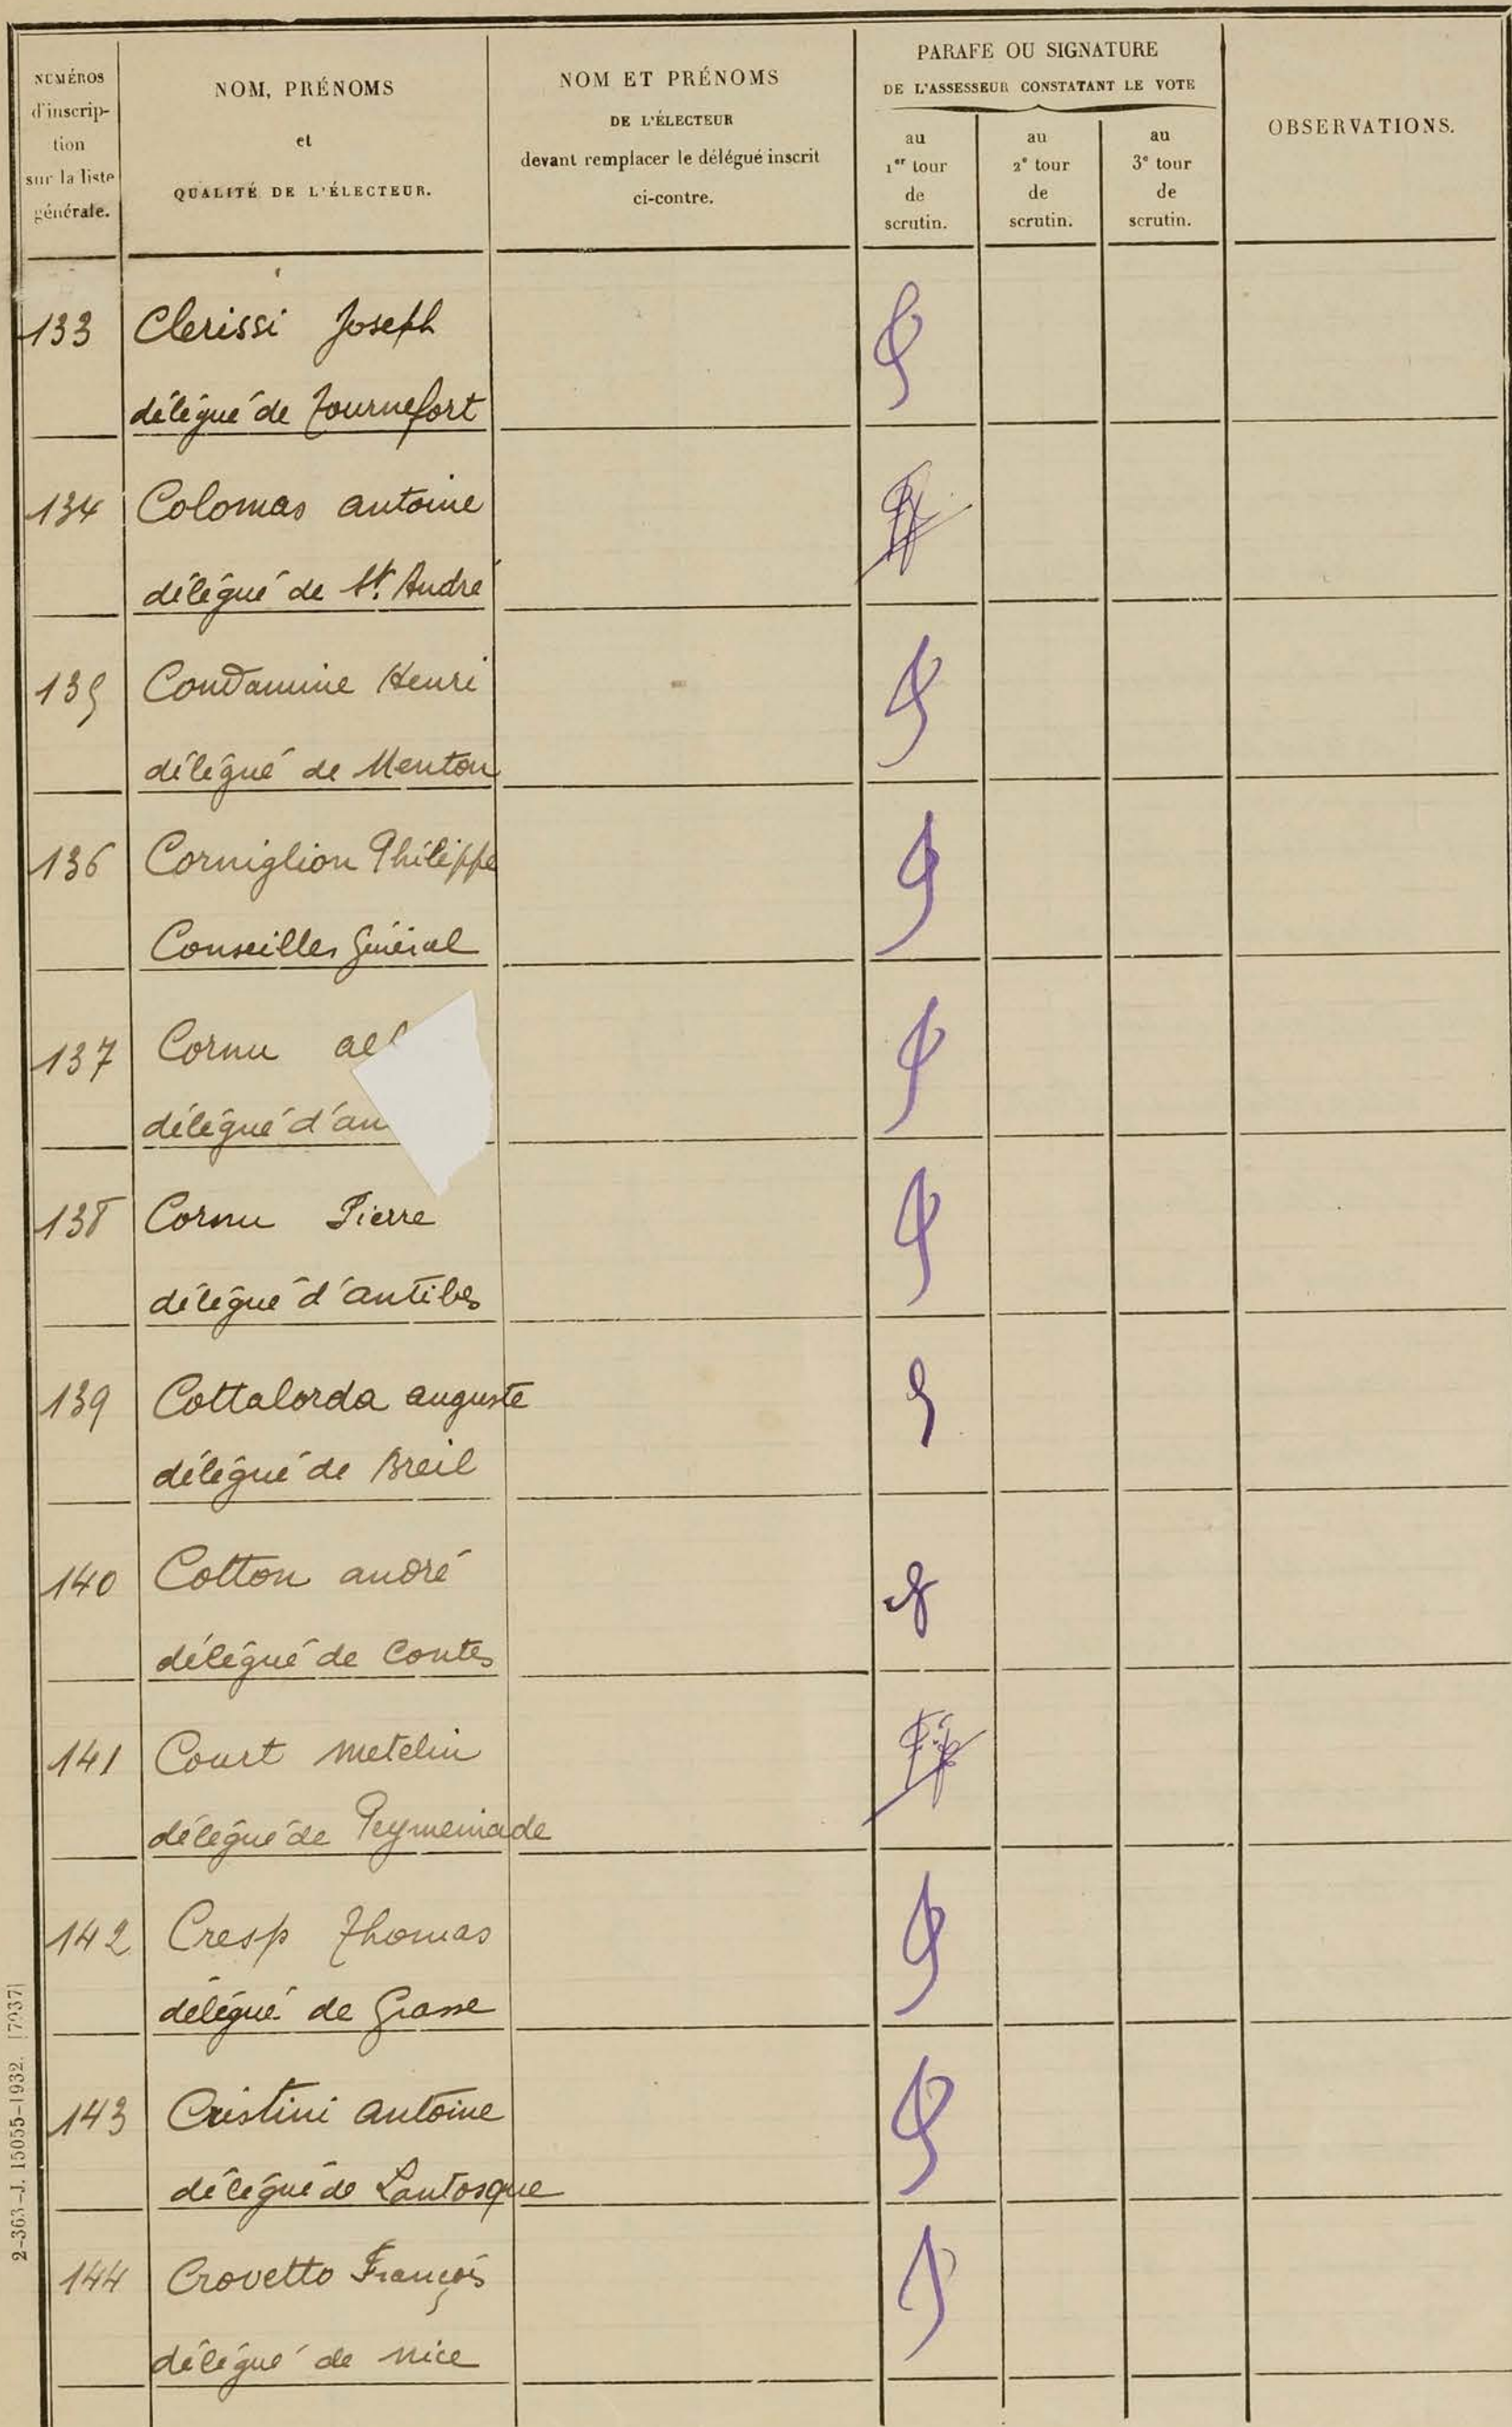 NUMÉROS
d'inscrip-
tion
sur la liste
générale.
NOM, PRÉNOMS
et
QUALITÉ DE L'ÉLECTEUR.
NOM ET PRÉNOMS
DE L'ÉLECTEUR
devant remplacer le délégué inscrit
ci-contre.
PARAFE OU SIGNATURE
DE L'ASSESSEUR CONSTATANT LE VOTE
au
1er tour
de
scrutin.
au
2e tour
de
scrutin.
au
3e tour
de
scrutin.
OBSERVATIONS.
133 Clerissi Joseph
délégué de Tournefort
134 Colomas antoine
délégué de St. André
135 Condamine Henri
délégué de Menton
136 Corniglion Philippe
Conseiller Général
137 Cornu
délégué
138 Cornu Pierre
délégué d'antibes
139 Cottalorda auguste
délégué de Breil
140 Cotton andré
délégué de Contes
141 Court metelin
délégué de Peymeinade
142 Cresp Thomas
délégué de Grasse
143 Cristini antoine
délégué de Lantosque
144 Crovetto François
délégué de nice
2-363-J. 15055-1932. [7237]